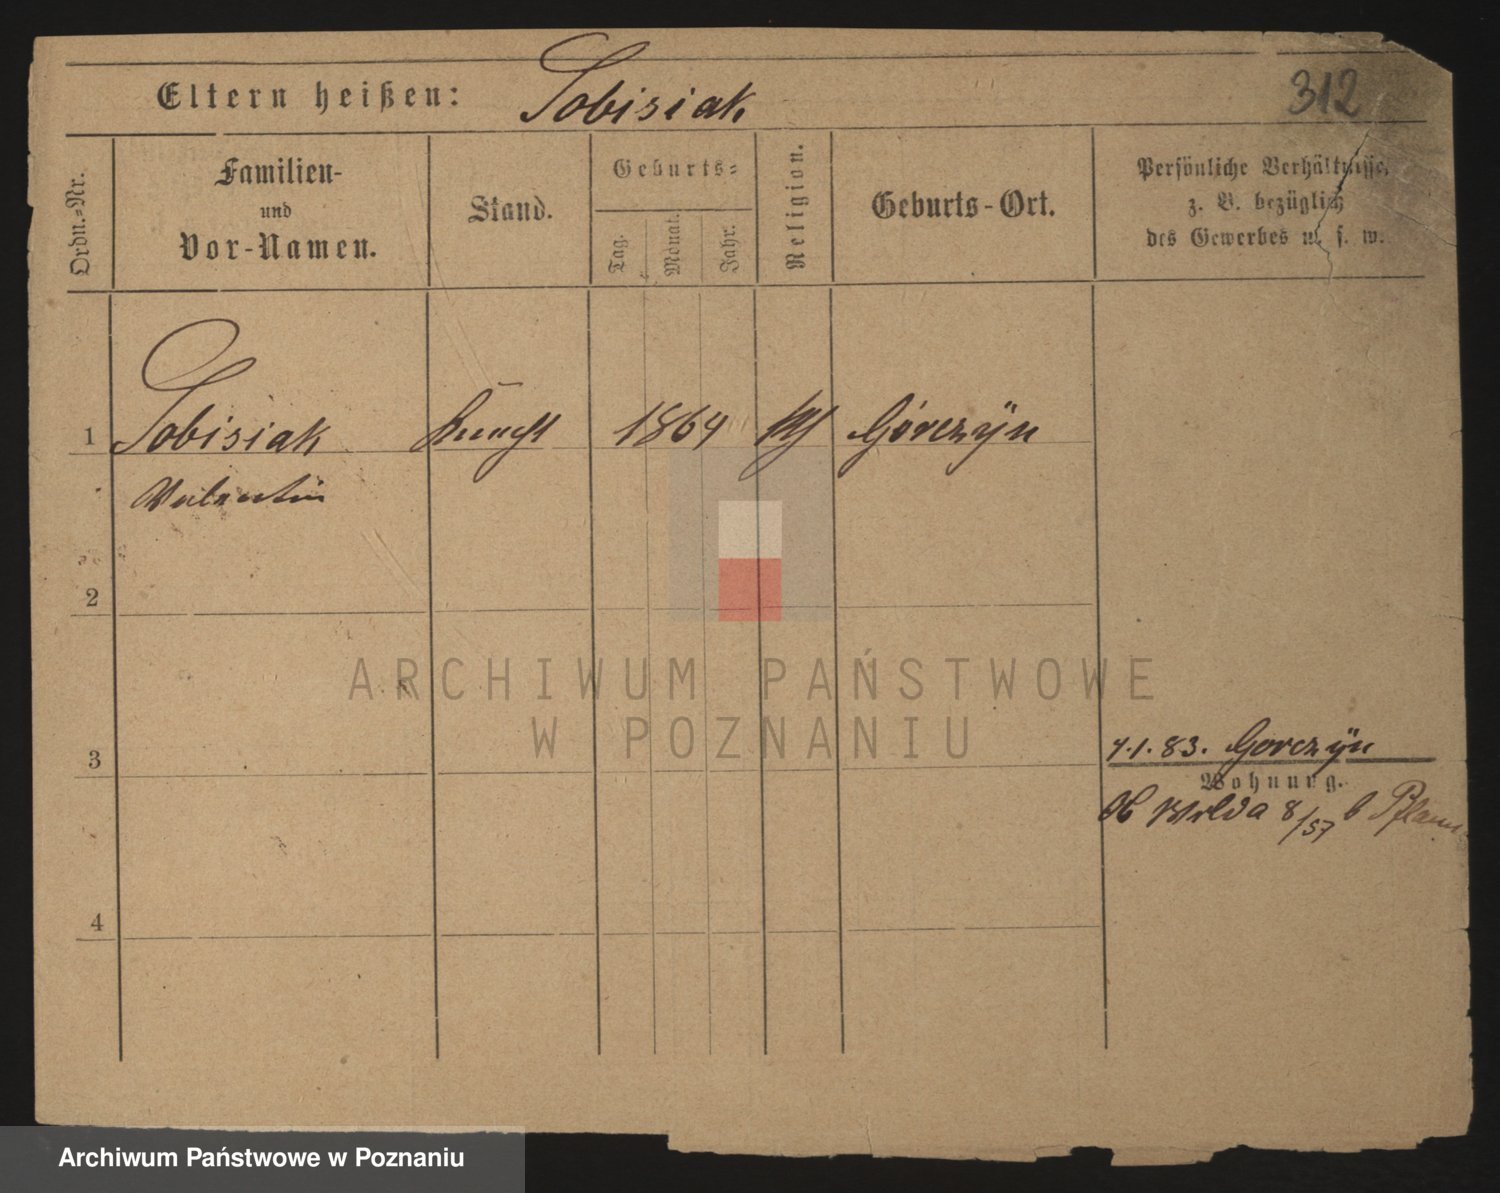 Eltern heißen: Sobisiak
312
Ordn.=Nr.
Familien-
und
Vor-Namen.
Stand.
Geburts=
Tag.
Monat.
Jahr.
Religion.
Geburts-Ort.
Persönliche Verhältnisse,
z. B. bezüglich
des Gewerbes u. s. w.
1 Sobisiak Knecht 1864 kth Górczÿn
Valentin
2
3
4
ARCHIWUM PAŃSTWOWE
W POZNANIU
4.1.83. Gorczÿn
Wohnung.
Ob Wilda 8/57 b
Archiwum Państwowe w Poznaniu